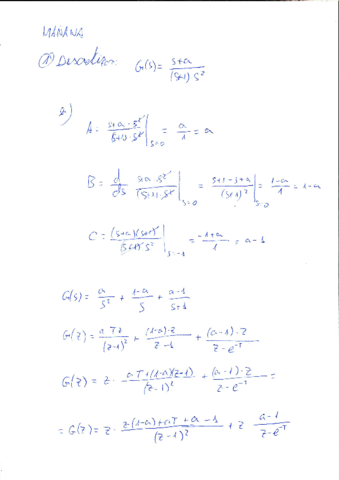 MAÑANA
1) Discretizar: G(s) = (s+a)/((s+1) s²)
a)
A = (s+a · s²)/((s+1) · s²) |s=0 = a/1 = a
B = d/ds (s+a · s²)/((s+1) · s²) |s=0 = (s+1-s+a)/(s+1)² |s=0 = (1-a)/1 = 1-a
C = ((s+a)(s+1))/((s+1) s²) |s=-1 = (-1+a)/1 = a-1
G(s) = a/s² + (1-a)/s + (a-1)/(s+1)
G(z) = aTz/(z-1)² + (1-a)·z/(z-1) + (a-1)·z/(z-e^-T)
G(z) = z · (aT+(1-a)(z-1))/(z-1)² + (a-1)·z/(z-e^-T) =
= G(z) = z · (z(1-a)+aT+a-1)/(z-1)² + z (a-1)/(z-e^-T)